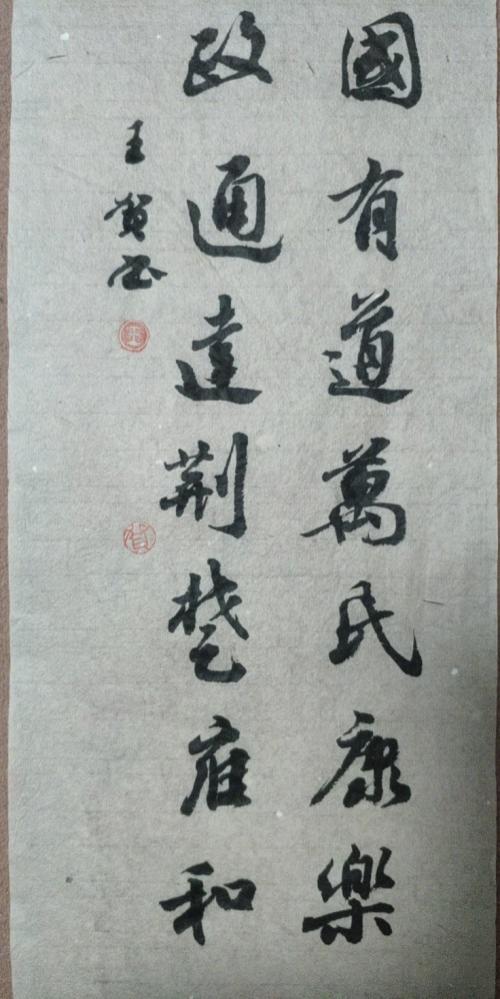 國有道萬民康樂
政通達荆楚雍和
王賀書